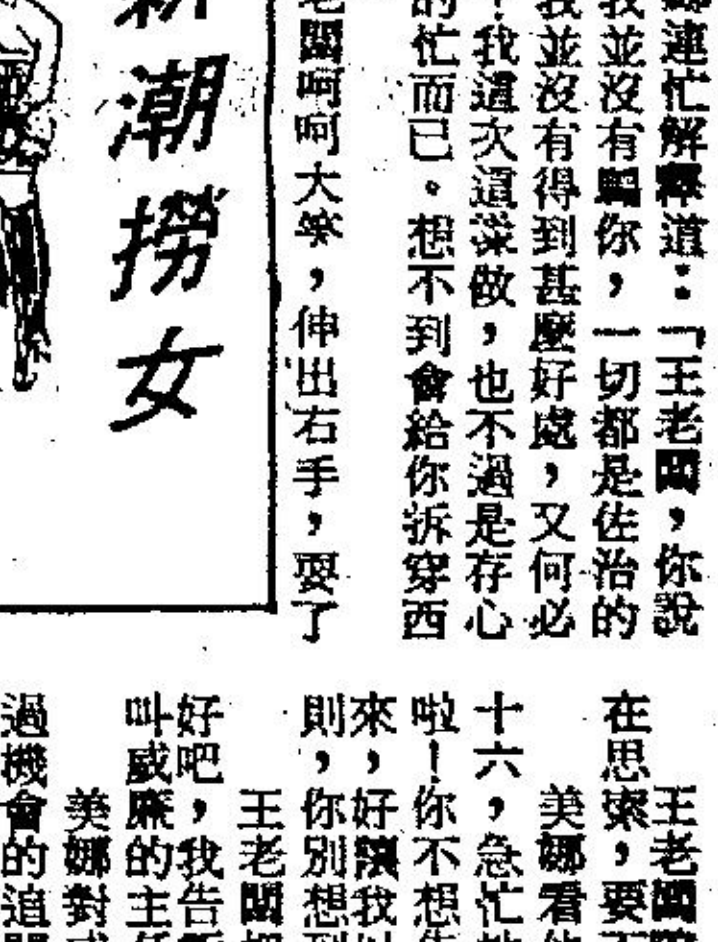 連忙解釋道：「王老闆，你說
我並沒有騙你，一切都是佐治的
我並沒有得到甚麼好處，又何必
！我這次這樣做，也不過是存心
的忙而已。想不到會給你拆穿西
老闆呵呵大笑，伸出右手，耍了
新潮撈女
王老闆
在思索，要
美娜看
十六，急忙
啦！你不想
來，好讓我
則，你別想到
王老闆
好吧，我告
叫威廉的主
美娜對
過機會的追